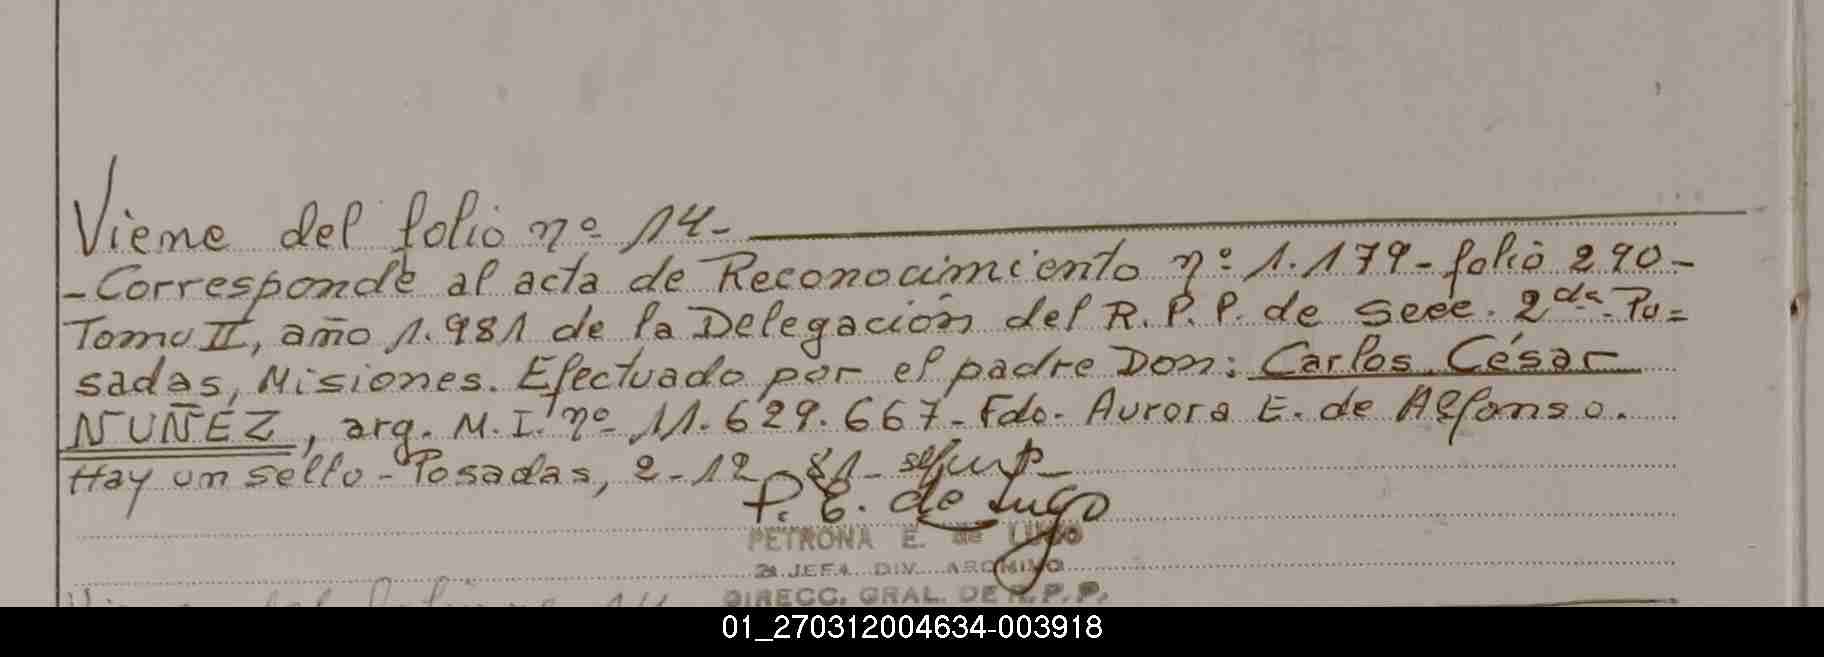 Viene del folio nº 14-
-Corresponde al acta de Reconocimiento nº 1.179-folio 290-
Tomo II, año 1.981 de la Delegación del R.P.P. de Secc. 2da. Po=
sadas, Misiones. Efectuado por el padre Don: Carlos César
NUÑEZ, arg. M.I. nº 11.629.667- Fdo. Aurora E. de Alfonso.
Hay un sello-Posadas, 2-12-81-
P. E. de Lugo
PETRONA E. de LUGO
2a JEFA DIV. ARCHIVO
DIRECC. GRAL. DE R.P.P.
01_270312004634-003918